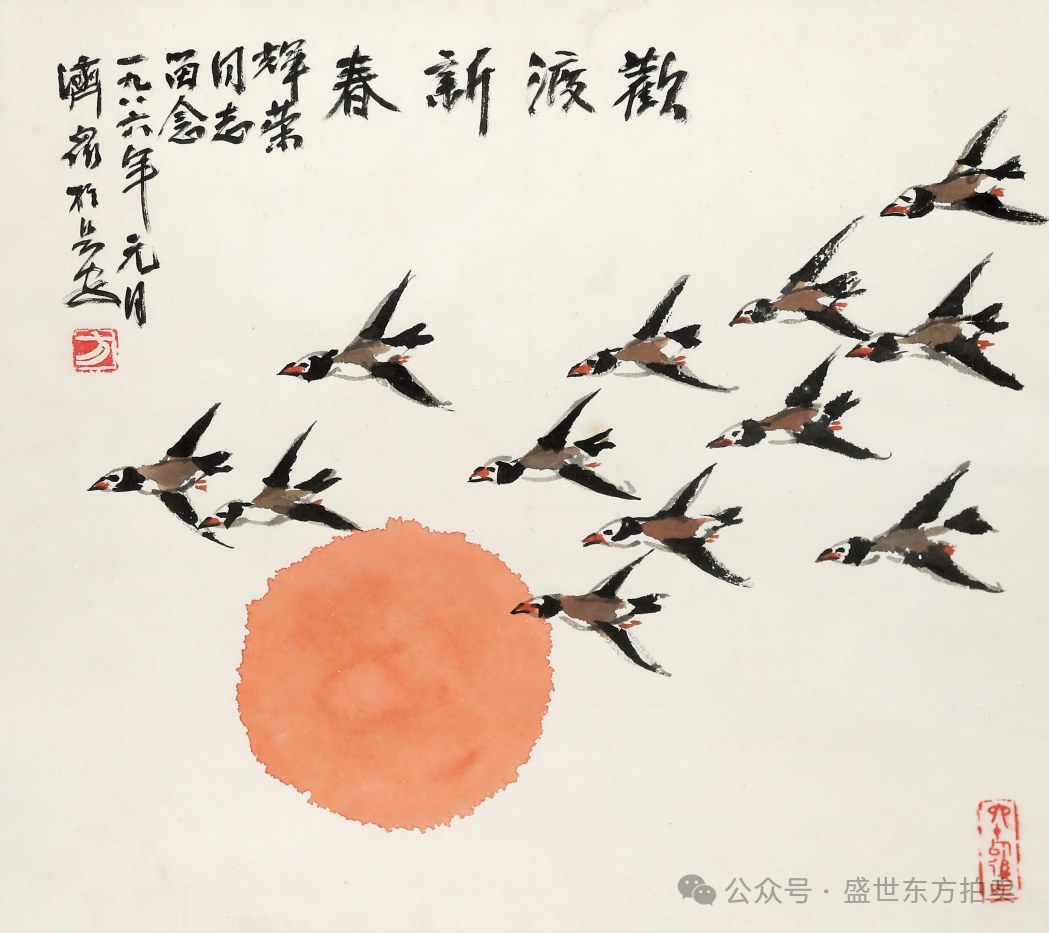 歡渡新春
輝榮
同志
留念
一九八六年元月
濟眾於长安
方
公众号 · 盛世东方拍卖